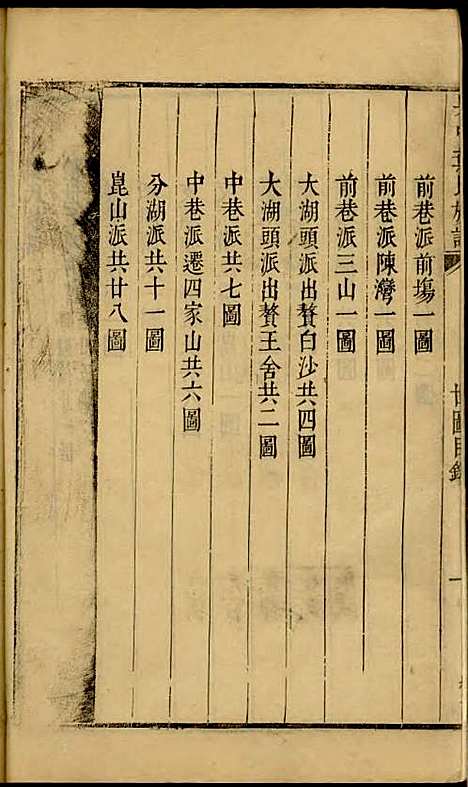 前巷派前塲一圖
前巷派陳灣一圖
前巷派三山一圖
大湖頭派出贅白沙共四圖
大湖頭派出贅王舍共二圖
中巷派共七圖
中巷派遷四家山共六圖
分湖派共十一圖
崑山派共廿八圖